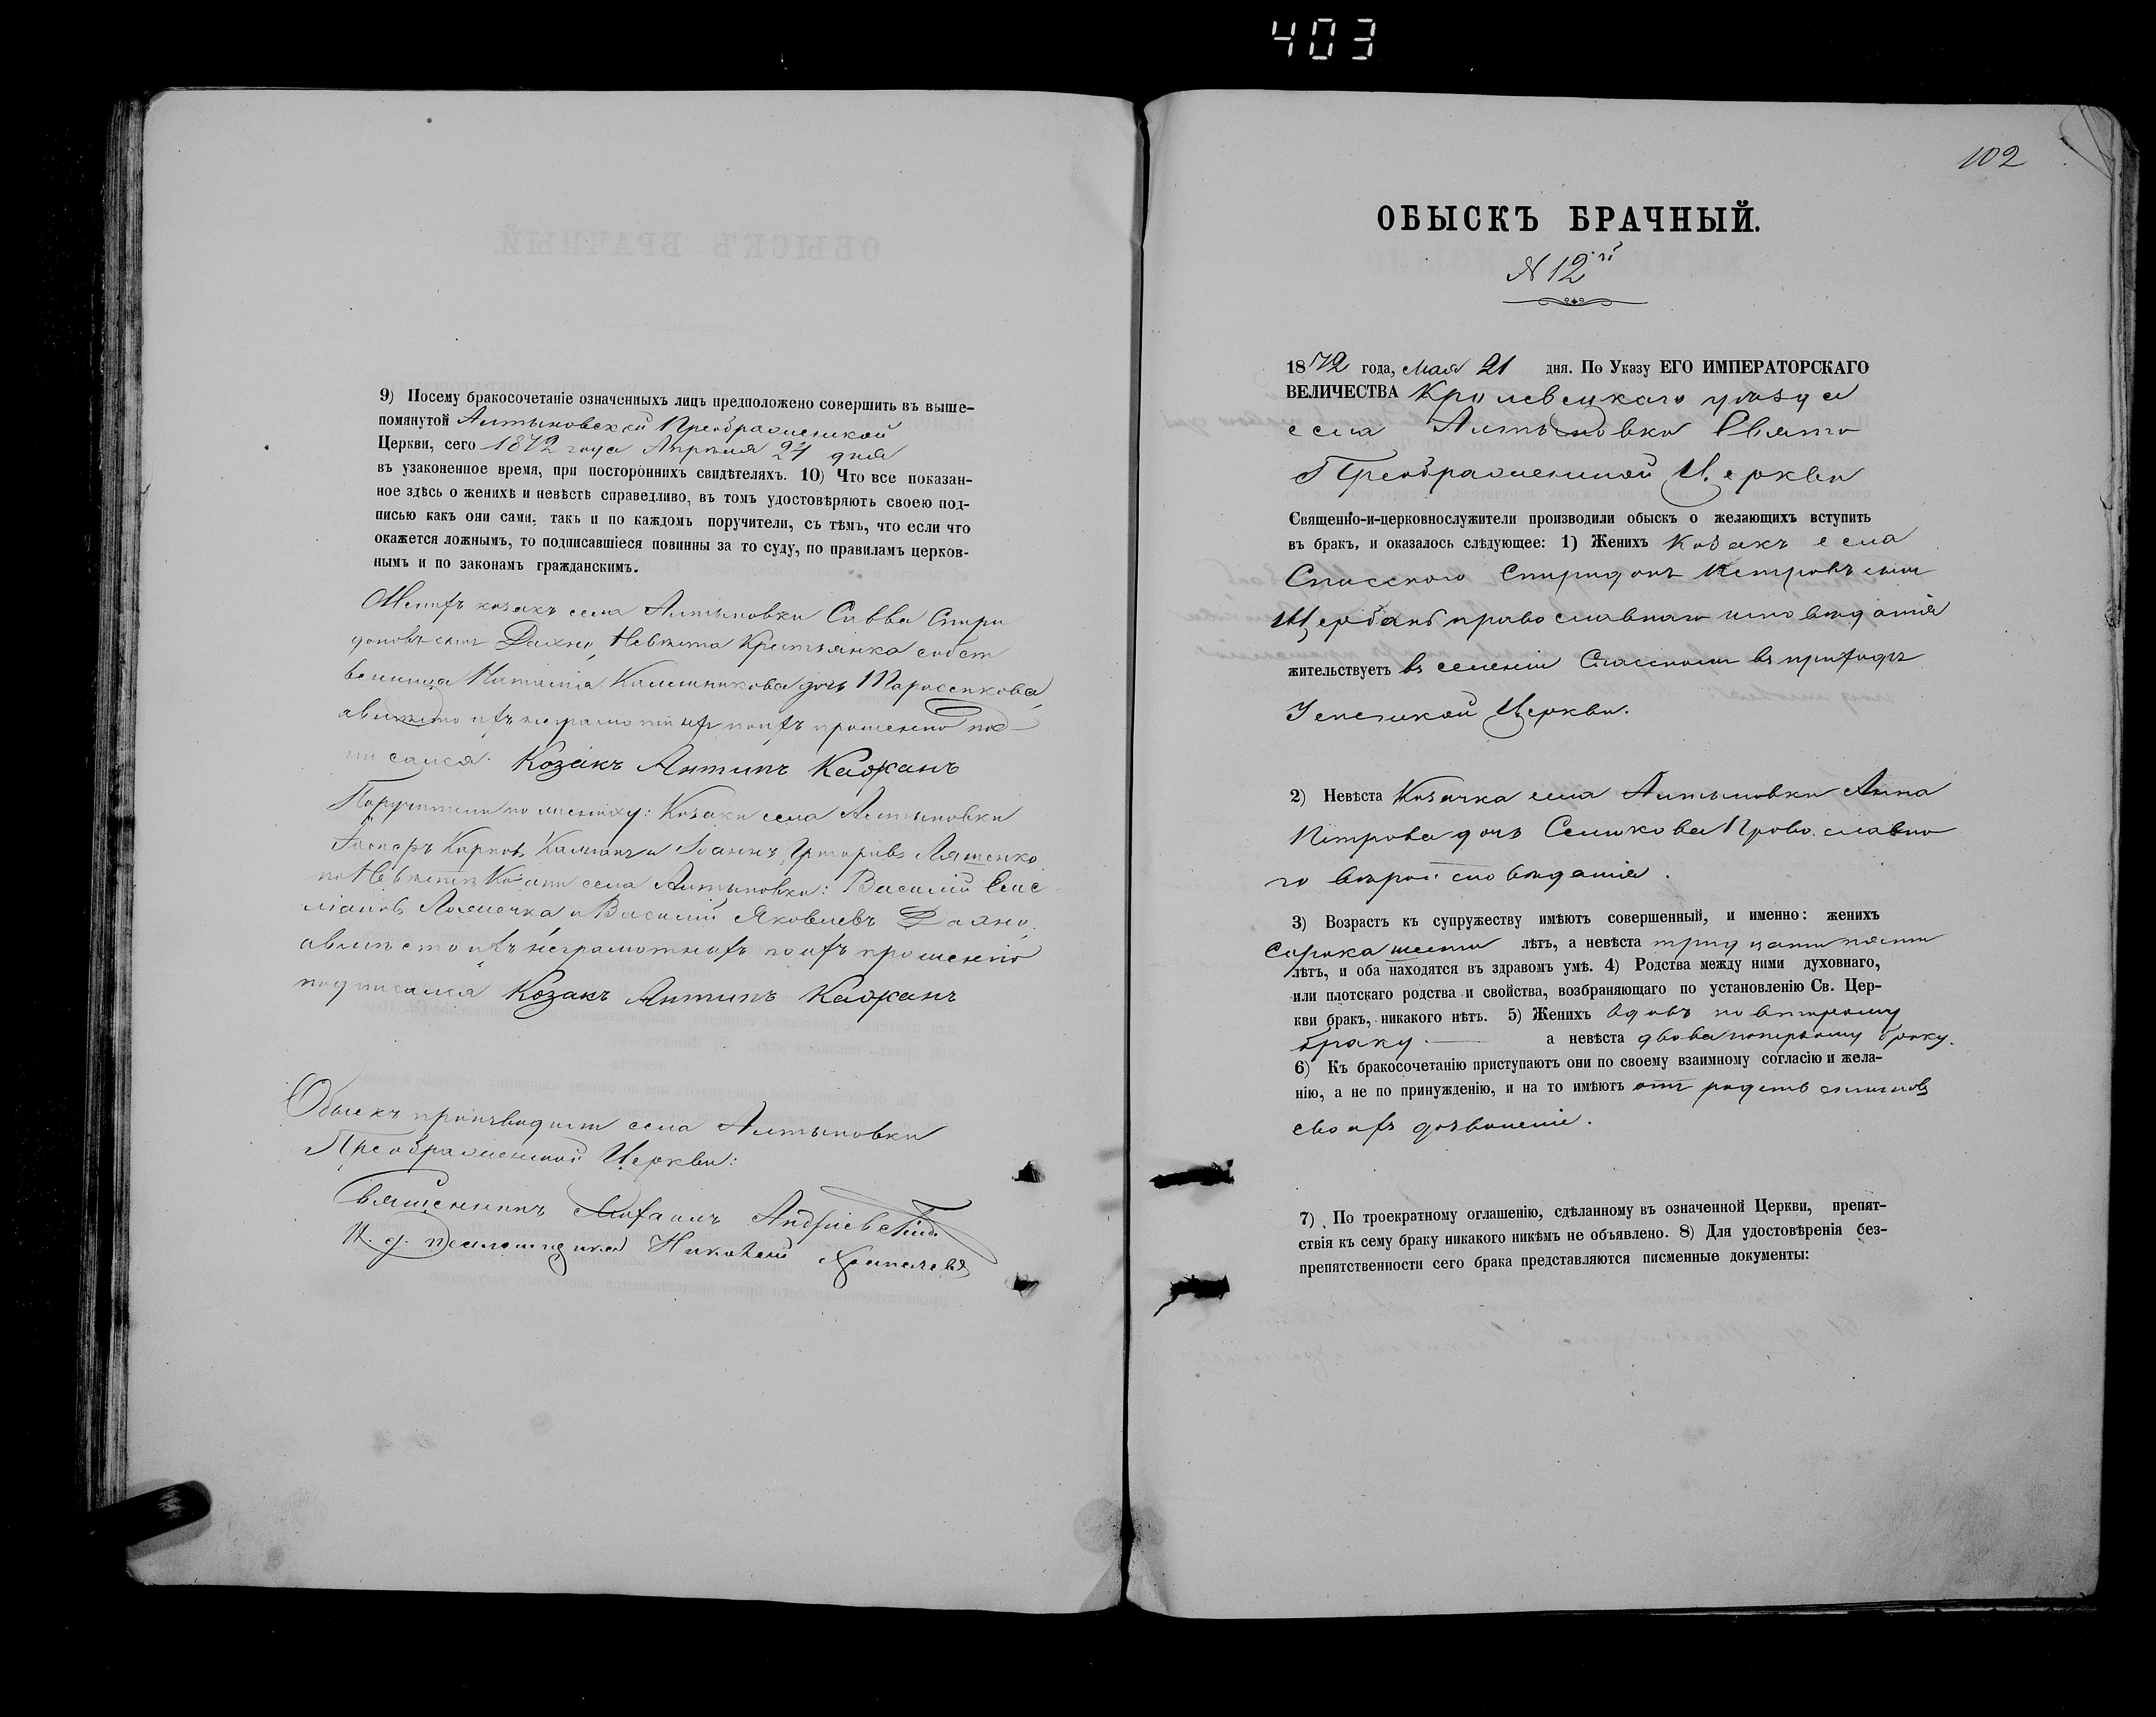 403
9) Посему бракосочетаніе означенныхъ лицъ предположено совершить въ выше-
помянутой Алтыновской Преображенской
Церкви, сего 1872 года Апрѣля 24 дня
въ узаконенное время, при постороннихъ свидѣтеляхъ. 10) Что все показан-
ное здѣсь о женихѣ и невѣстѣ справедливо, въ томъ удостовѣряютъ своею под-
писью какъ они сами, такъ и по каждомъ поручители, съ тѣмъ, что если что
окажется ложнымъ, то подписавшіеся повинны за то суду, по правиламъ церков-
нымъ и по законамъ гражданскимъ.
Женихъ козакъ села Алтыновки Савва Спири
доновъ сынъ Дахно, Невѣста Крестьянка собст
венница Наталія Калинникова дочь Тарасенкова,
а вмѣсто ихъ неграмотныхъ по ихъ прошенію под-
писался Козакъ Антипъ Кажанъ
Поручители по жениху: Козаки села Алтыновки
Карповъ и Іоаннъ Григорьевъ Ляшенко
по Невѣстѣ Козаки села Алтыновки: Василій
и Василій Яковлевъ Дахно,
а вмѣсто ихъ неграмотныхъ по ихъ прошенію
подписался Козакъ Антипъ Кажанъ
Обыскъ производили села Алтыновки
Преображенской Церкви:
Священникъ Михаилъ
И. д. псаломщика Николай
102
ОБЫСКЪ БРАЧНЫЙ.
N 12й
1872 года, Мая 21 дня. По Указу ЕГО ИМПЕРАТОРСКАГО
ВЕЛИЧЕСТВА Кролевецкаго уѣзда
села Алтыновки Свято
Преображенской Церкви
Священно-и-церковнослужители производили обыскъ о желающихъ вступить
въ бракъ, и оказалось слѣдующее: 1) Женихъ Козакъ села
Спасского Спиридонъ Петровъ сынъ
Щербакъ православнаго исповѣданія
жительствуетъ въ селеніи Спасскомъ въ приходѣ
Успенской Церкви.
2) Невѣста Козачка села Алтыновки Анна
Петрова дочь Семикова Православно
го вѣроисповѣданія.
3) Возрастъ къ супружеству имѣютъ совершенный, и именно: женихъ
сорока шести лѣтъ, а невѣста тридцати пяти
лѣтъ, и оба находятся въ здравомъ умѣ. 4) Родства между ними духовнаго,
или плотскаго родства и свойства, возбраняющаго по установленію Св. Цер-
кви бракъ, никакого нѣтъ. 5) Женихъ вдовъ по второму
браку. а невѣста вдова по первому браку.
6) Къ бракосочетанію приступаютъ они по своему взаимному согласію и жела-
нію, а не по принужденію, и на то имѣютъ отъ родственниковъ
своихъ дозволеніе.
7) По троекратному оглашенію, сдѣланному въ означенной Церкви, препят-
ствія къ сему браку никакого никѣмъ не объявлено. 8) Для удостовѣренія без-
препятственности сего брака представляются писменные документы: